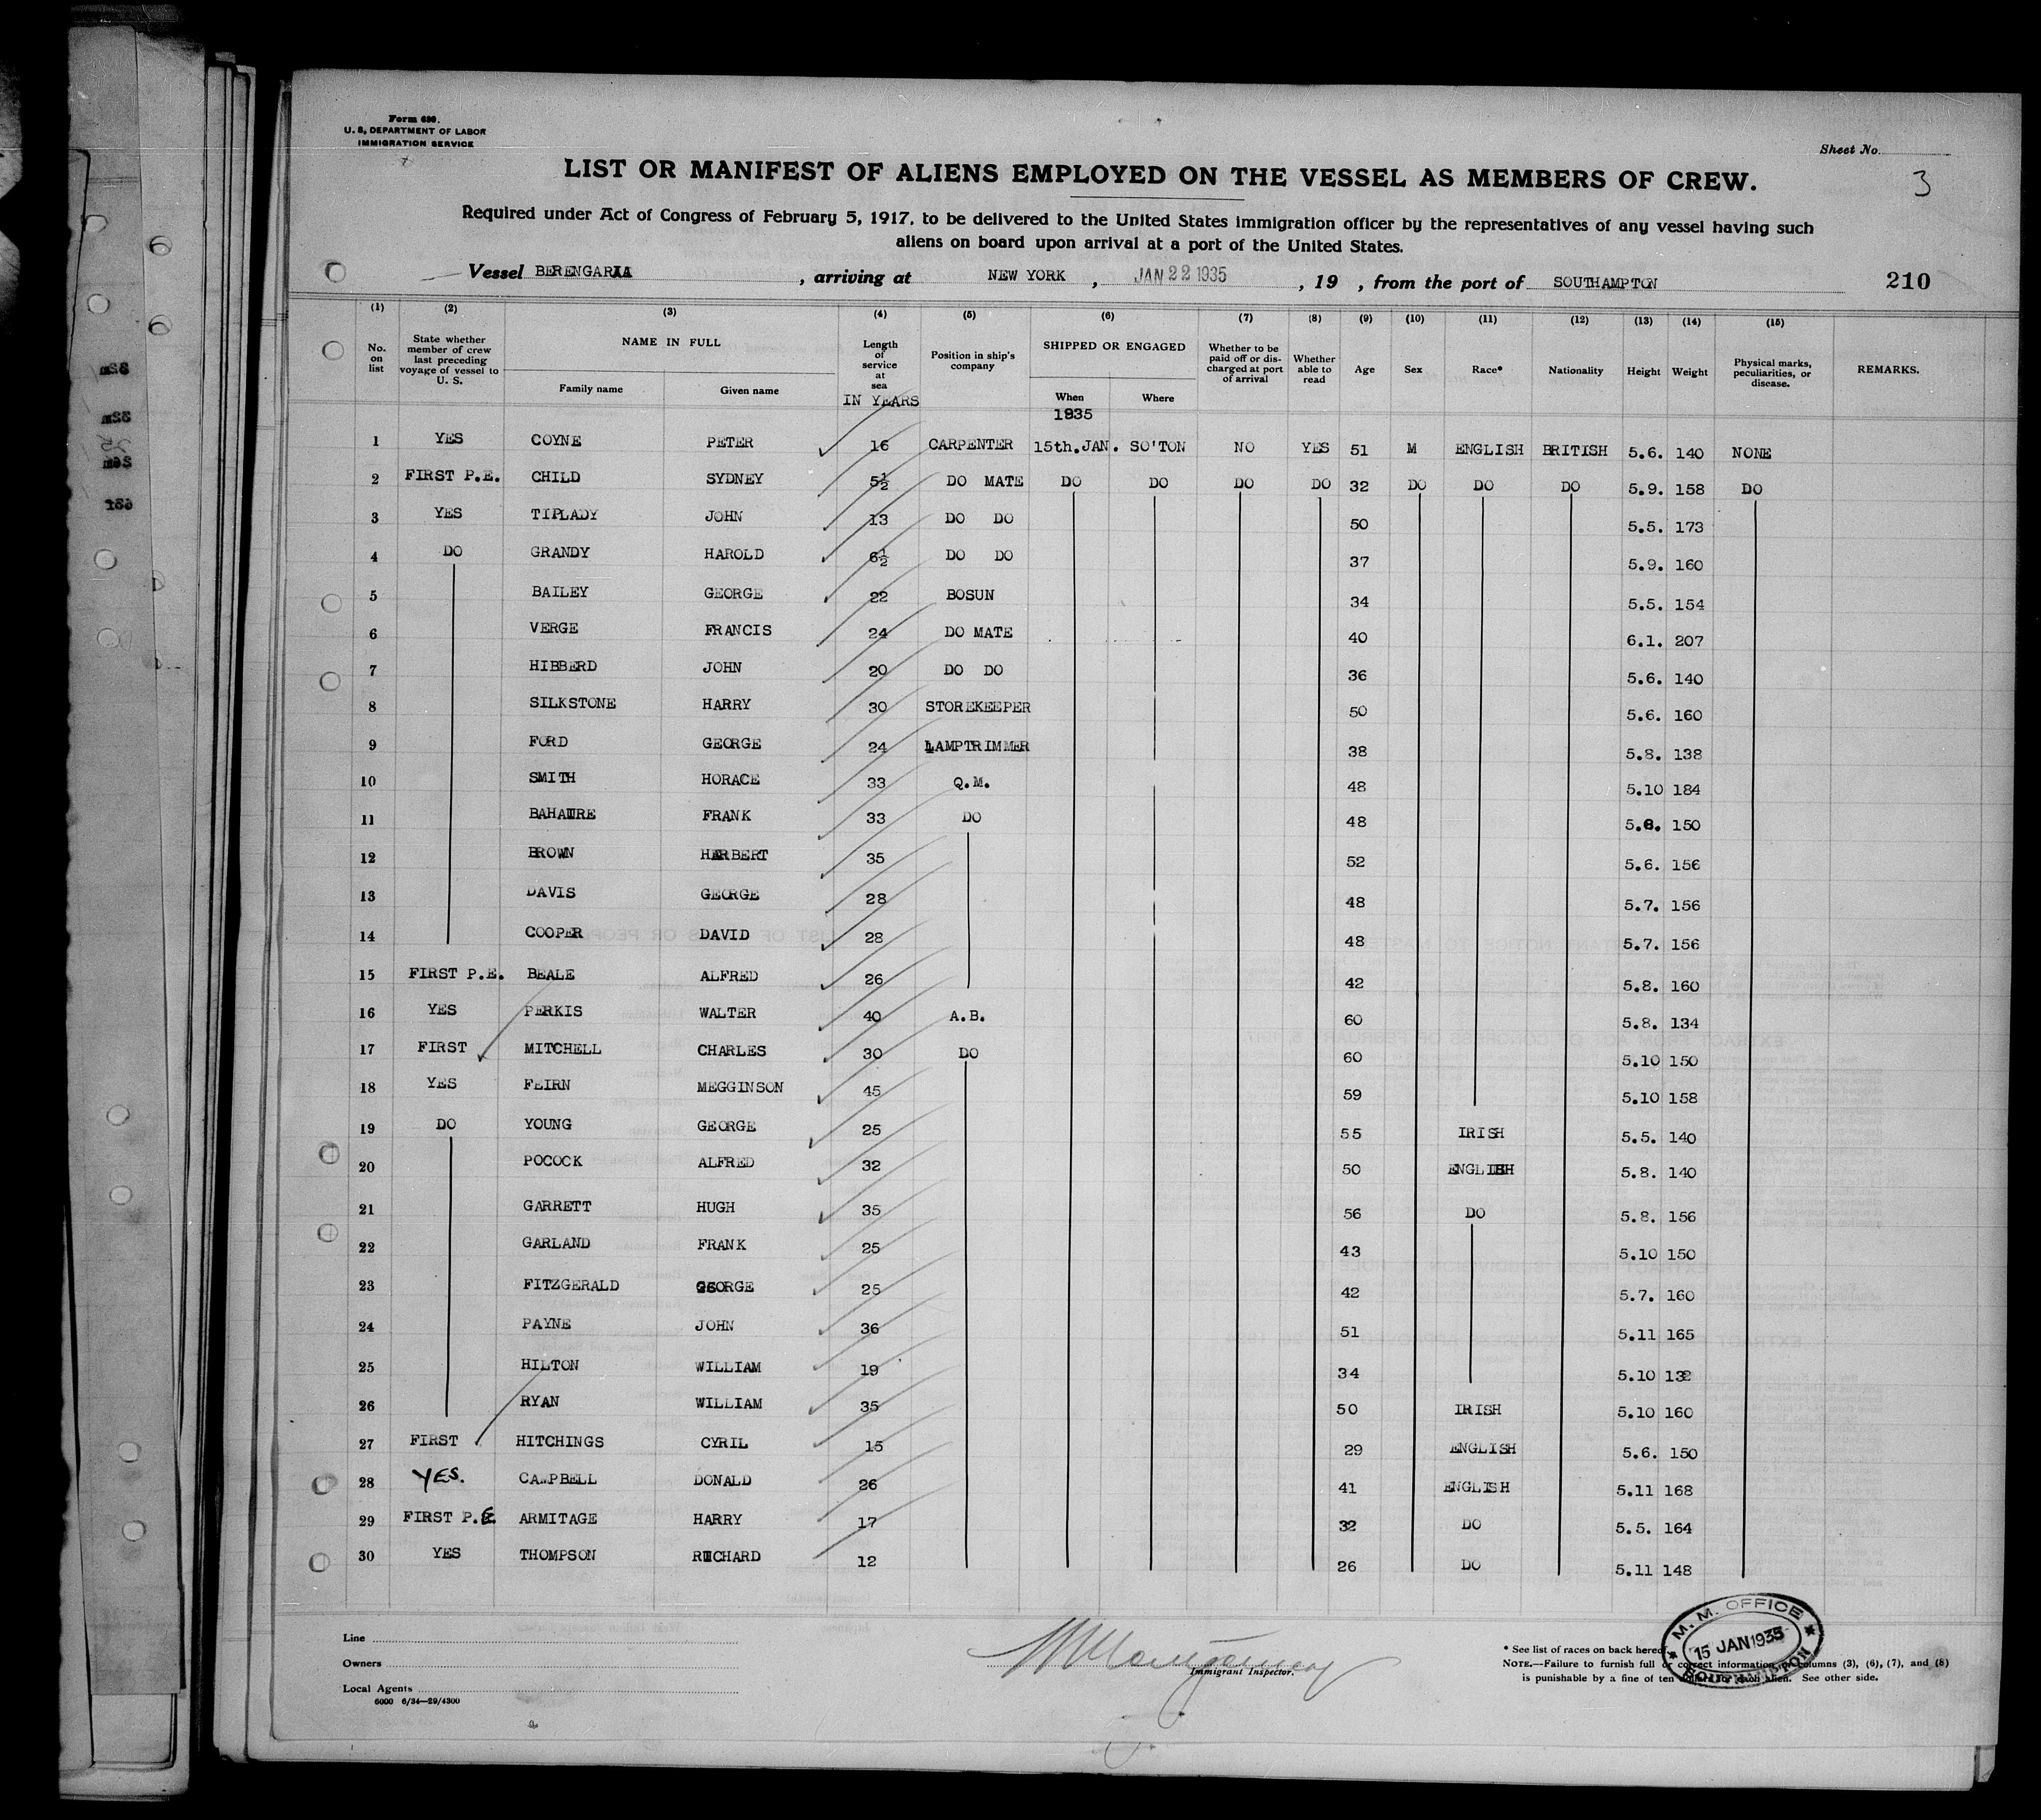 Form 680.
U. S. DEPARTMENT OF LABOR
IMMIGRATION SERVICE
Sheet No.
3
LIST OR MANIFEST OF ALIENS EMPLOYED ON THE VESSEL AS MEMBERS OF CREW.
Required under Act of Congress of February 5, 1917, to be delivered to the United States immigration officer by the representatives of any vessel having such
aliens on board upon arrival at a port of the United States.
Vessel BERENGARIA, arriving at NEW YORK, JAN 22 1935, 19 , from the port of SOUTHAMPTON 210
(1) (2) (3) (4) (5) (6) (7) (8) (9) (10) (11) (12) (13) (14) (15)
No. on list State whether member of crew last preceding voyage of vessel to U. S. NAME IN FULL Family name Given name Length of service at sea IN YEARS Position in ship's company SHIPPED OR ENGAGED When 1935 Where Whether to be paid off or discharged at port of arrival Whether able to read Age Sex Race* Nationality Height Weight Physical marks, peculiarities, or disease. REMARKS.
1 YES COYNE PETER 16 CARPENTER 15th.JAN. SO'TON NO YES 51 M ENGLISH BRITISH 5.6. 140 NONE
2 FIRST P.E. CHILD SYDNEY 5½ DO MATE DO DO DO DO 32 DO DO DO 5.9. 158 DO
3 YES TIPLADY JOHN 13 DO DO 50 5.5. 173
4 DO GRANDY HAROLD 6½ DO DO 37 5.9. 160
5 BAILEY GEORGE 22 BOSUN 34 5.5. 154
6 VERGE FRANCIS 24 DO MATE 40 6.1. 207
7 HIBBERD JOHN 20 DO DO 36 5.6. 140
8 SILKSTONE HARRY 30 STOREKEEPER 50 5.6. 160
9 FORD GEORGE 24 LAMPTRIMMER 38 5.8. 138
10 SMITH HORACE 33 Q.M. 48 5.10 184
11 FRANK 33 DO 48 150
12 BROWN HERBERT 35 52 5.6. 156
13 DAVIS GEORGE 28 48 5.7. 156
14 COOPER DAVID 28 48 5.7. 156
15 FIRST P.E. BEALE ALFRED 26 42 5.8. 160
16 YES PERKIS WALTER 40 A.B. 60 5.8. 134
17 FIRST MITCHELL CHARLES 30 DO 60 5.10 150
18 YES FEIRN MEGGINSON 45 59 5.10 158
19 DO YOUNG GEORGE 25 55 IRISH 5.5. 140
20 POCOCK ALFRED 32 50 ENGLISH 5.8. 140
21 GARRETT HUGH 35 56 DO 5.8. 156
22 GARLAND FRANK 25 43 5.10 150
23 FITZGERALD GEORGE 25 42 5.7. 160
24 PAYNE JOHN 36 51 5.11 165
25 HILTON WILLIAM 19 34 5.10 132
26 RYAN WILLIAM 35 50 IRISH 5.10 160
27 FIRST HITCHINGS CYRIL 15 29 ENGLISH 5.6. 150
28 YES. CAMPBELL DONALD 26 41 ENGLISH 5.11 168
29 FIRST P.E ARMITAGE HARRY 17 32 DO 5.5. 164
30 YES THOMPSON RICHARD 12 26 DO 5.11 148
Line
Owners
Local Agents
6000 6/34—29/4300
Immigrant Inspector.
M. M. OFFICE
15 JAN 1935
SOUTHAMPTON
* See list of races on back hereof.
NOTE.—Failure to furnish full or correct information columns (3), (6), (7), and (8)
is punishable by a fine of ten dollars for each alien. See other side.